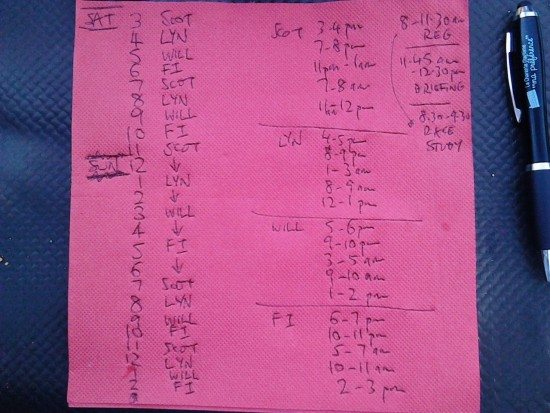 SAT 3 SCOT
4 LYN
5 WILL
6 FI
7 SCOT
8 LYN
9 WILL
10 FI
11 SCOT
SUN 12 ↓
1 LYN
2 ↓
3 WILL
4 ↓
5 FI
6 ↓
7 SCOT
8 LYN
9 WILL
10 FI
11 SCOT
12 LYN
1 WILL
2 FI
3
SCOT 3-4 pm
7-8 pm
11pm-1am
7-8 am
11-12 pm
LYN 4-5 pm
8-9 pm
1-3 am
8-9 am
12-1 pm
WILL 5-6 pm
9-10 pm
3-5 am
9-10 am
1-2 pm
FI 6-7 pm
10-11 pm
5-7 am
10-11 am
2-3 pm
8-11.30 am
REG
11-45 am
-12-30 pm
BRIEFING
8.30-9.30
RACE
STUDY